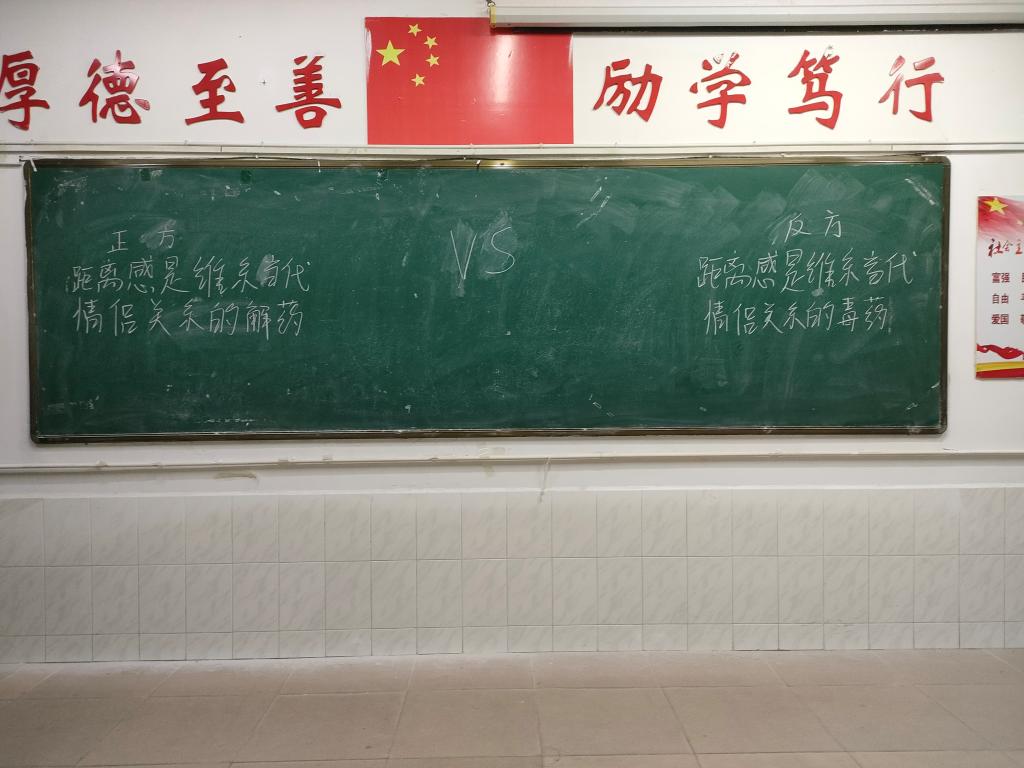 厚德至善
励学笃行
正方
距离感是维系当代
情侣关系的解药
VS
反方
距离感是维系当代
情侣关系的毒药
社会主
富强
自由
爱国